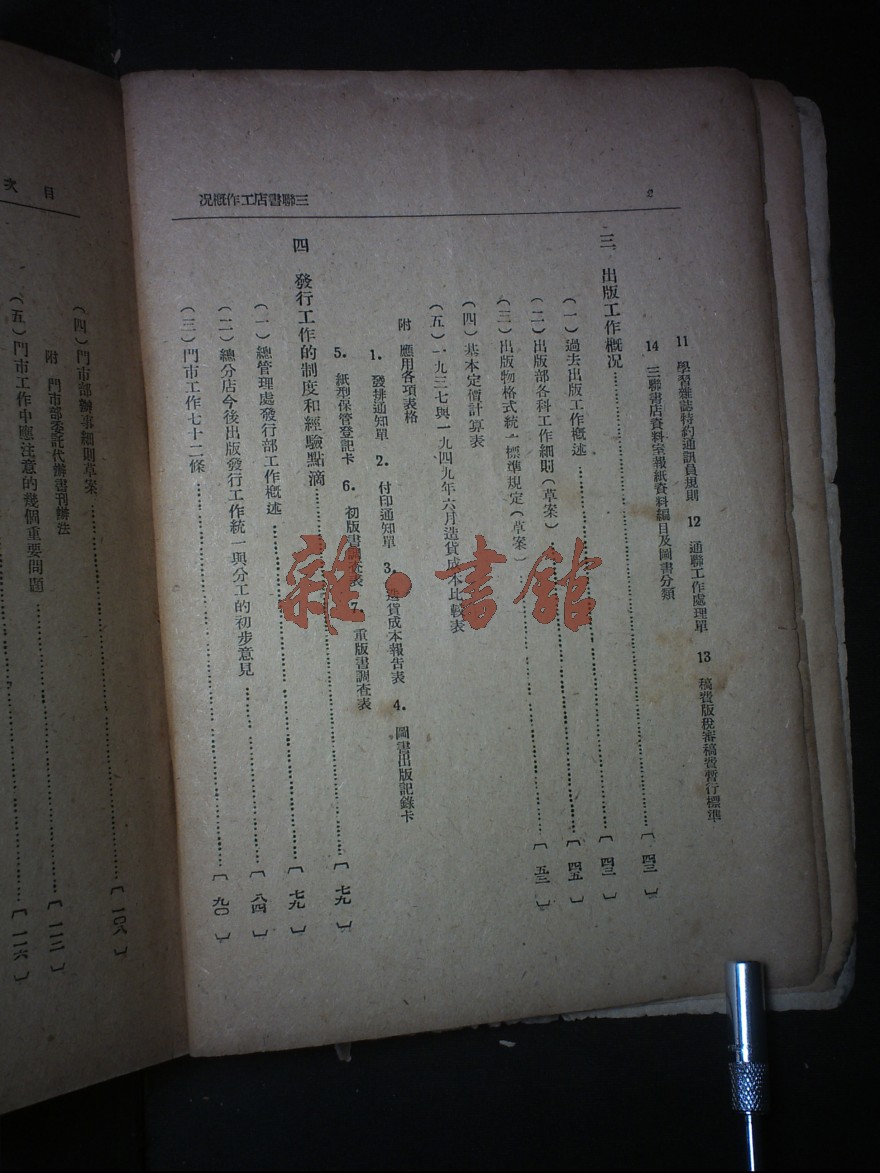 2
三聯書店工作概況
11 學習雜誌特約通訊員規則 12 通聯工作處理單 13 稿費版稅審稿費暫行標準
14 三聯書店資料室報紙資料編目及圖書分類
三 出版工作概況……〔四三〕
(一)過去出版工作概述……〔四三〕
(二)出版部各科工作細則(草案)……〔四五〕
(三)出版物格式統一標準規定(草案)……〔五三〕
(四)基本定價計算表
(五)一九三七與一九四九年六月造貨成本比較表
附 應用各項表格
1. 發排通知單 2. 付印通知單 3. 造貨成本報告表 4. 圖書出版記錄卡
5. 紙型保管登記卡 6. 初版書調查表 7. 重版書調查表
四 發行工作的制度和經驗點滴……〔七九〕
(一)總管理處發行部工作概述……〔七九〕
(二)總分店今後出版發行工作統一與分工的初步意見……〔八四〕
(三)門市工作七十二條……〔九〇〕
目次
(四)門市部辦事細則草案……〔一〇八〕
附 門市部委託代辦書刊辦法……〔一一二〕
(五)門市工作中應注意的幾個重要問題……〔一一六〕
雜·書館